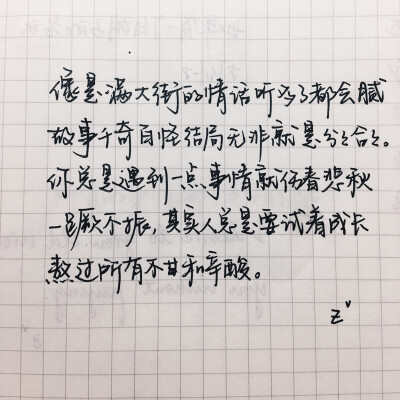 像是满大街的情话听多了都会腻
故事千奇百怪结局无非就是分分合合。
你总是遇到一点事情就伤春悲秋
一蹶不振，其实人总是要试着成长
熬过所有不甘和辛酸。
z